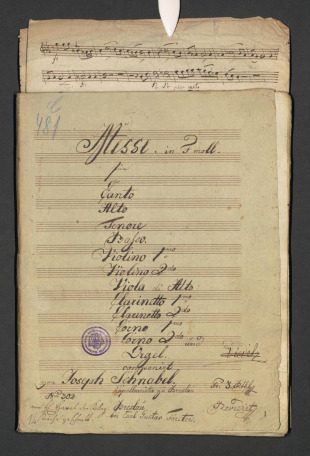 481
Missa in F moll.
für
Canto
Alto
Tenore
Basso.
Violino 1mo
Violino 2do
Viola di Alto
Clarinetto 1mo
Clarinetto 2do
Corno 1mo
Corno 2do und
Orgel.
componirt
von Joseph Schnabel,
Kapellmeister zu Breslau
No 303
Breslau
bei Carl Gustav Förster.